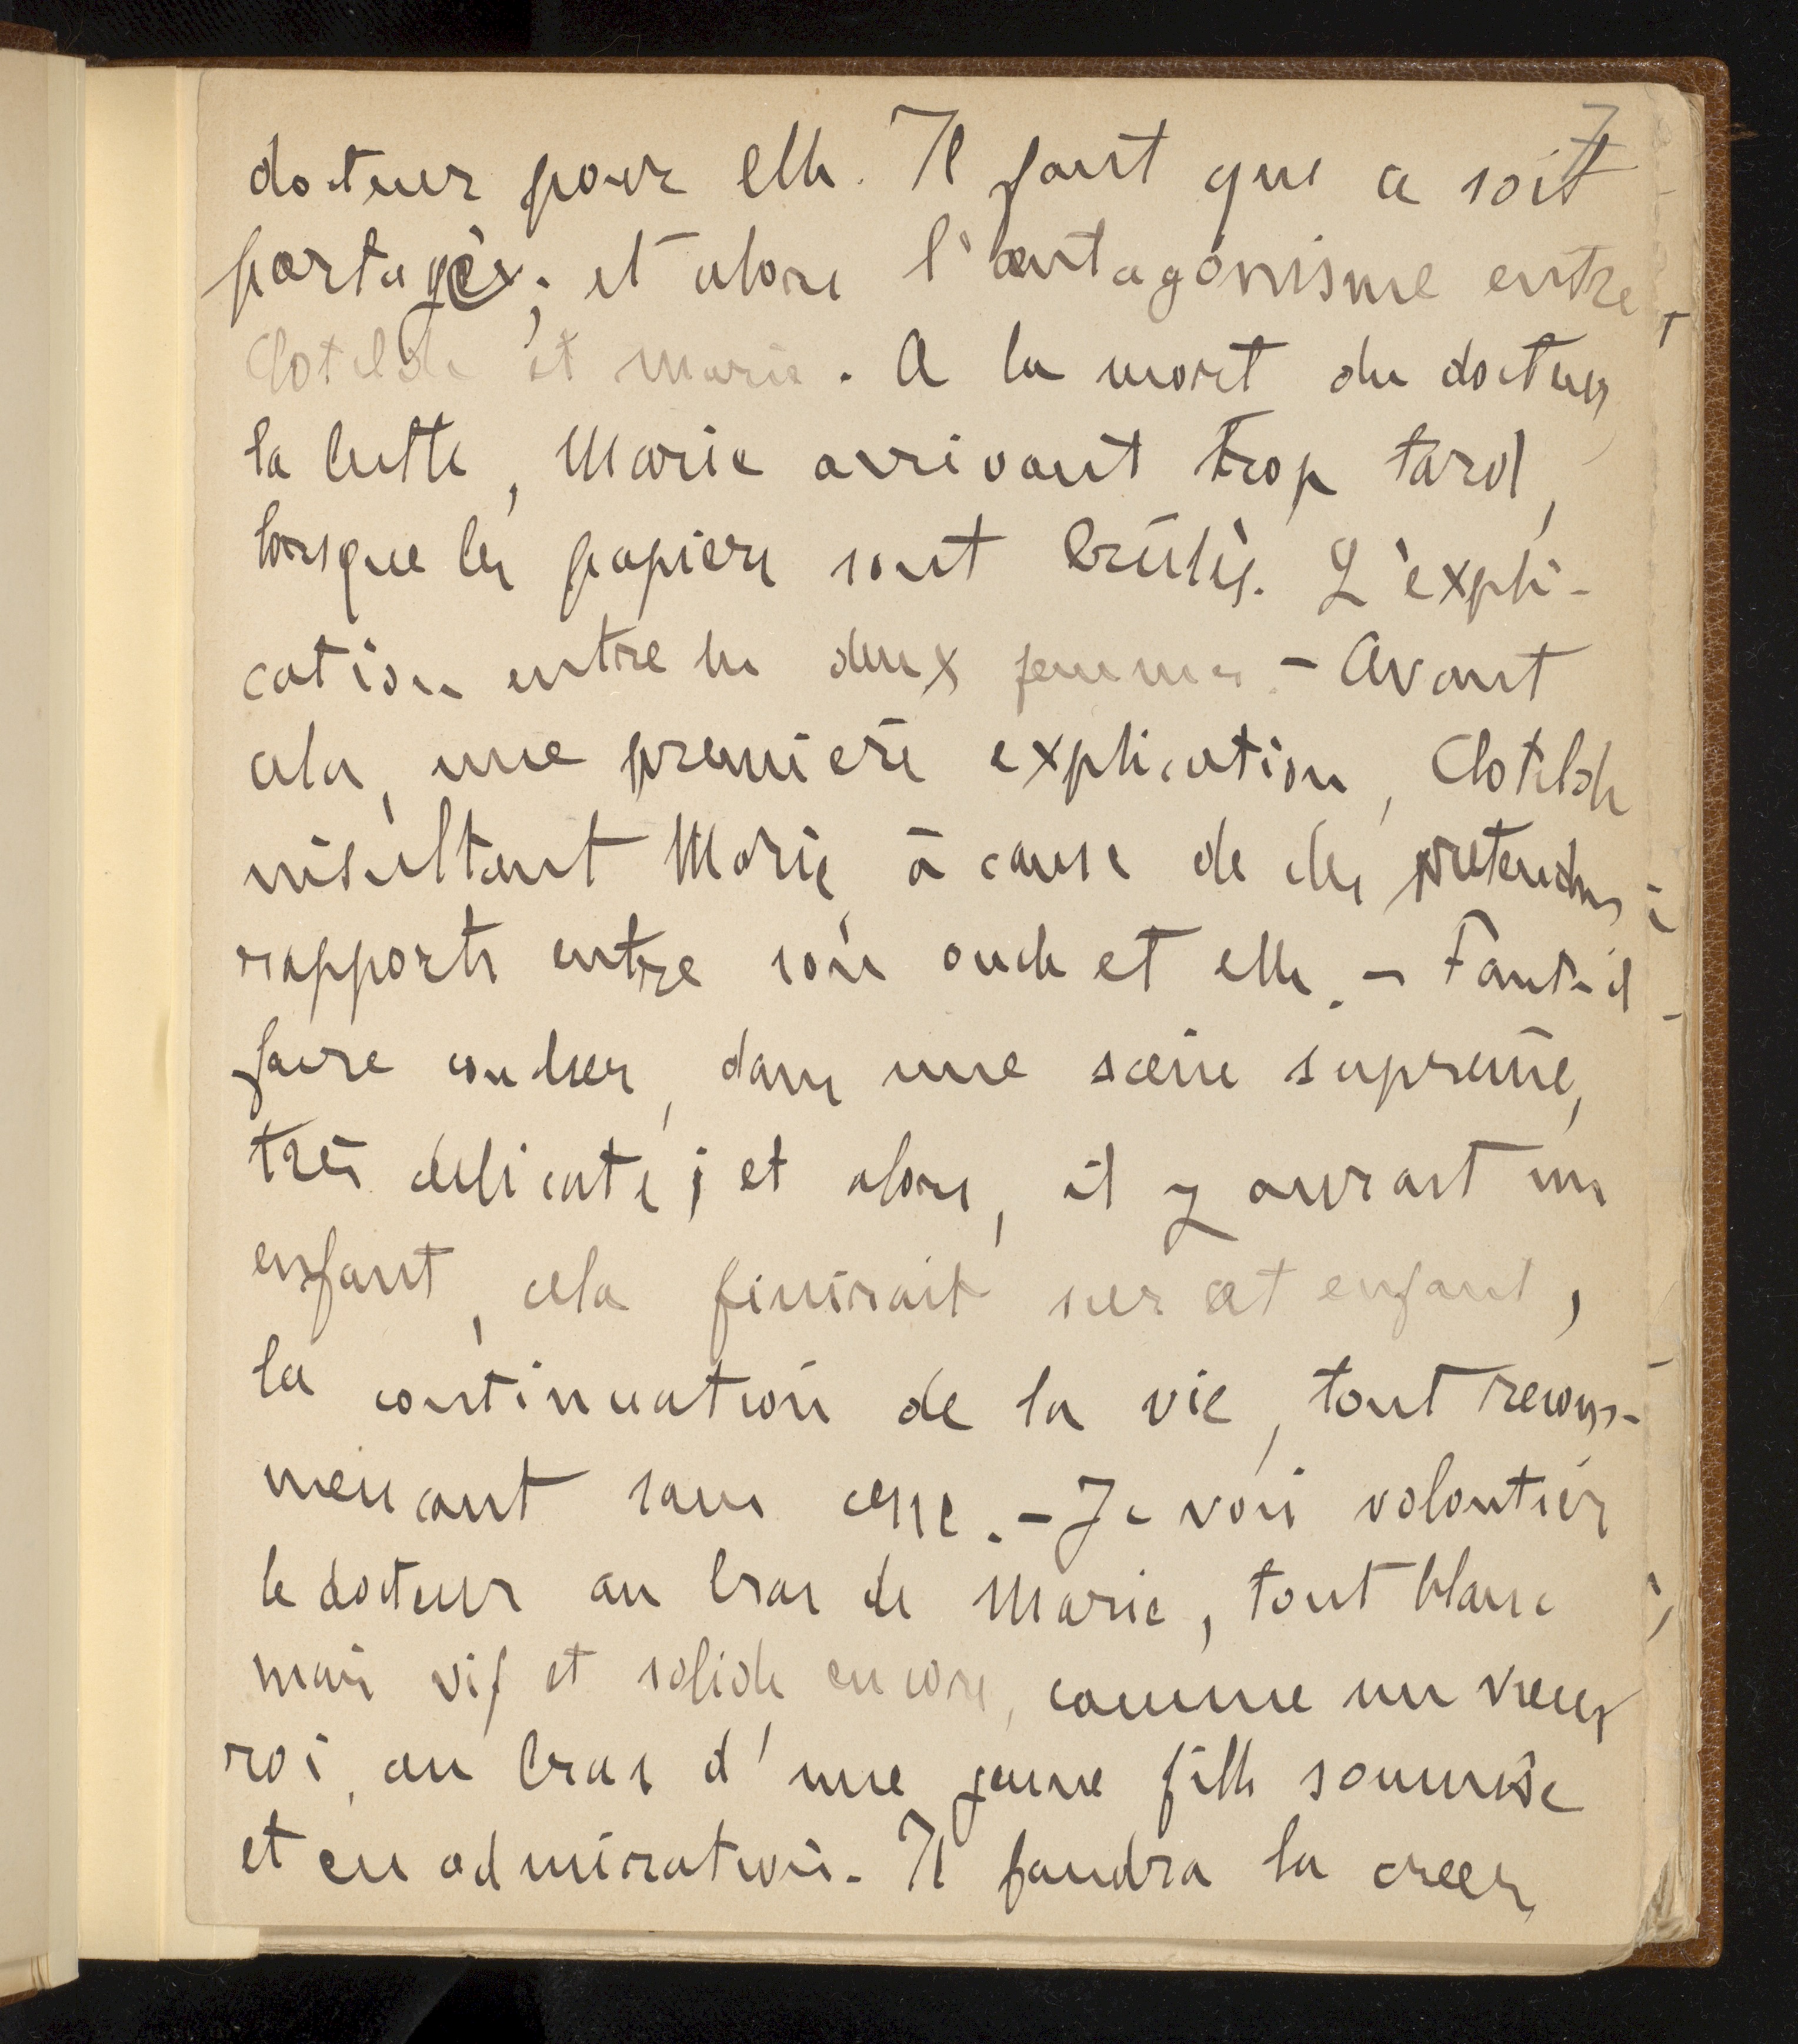 7
docteur pour elle. Il faut que ce soit
partagé; et alors l'antagonisme entre
Clotilde et Marie. A la mort du docteur,
la lutte, Marie arrivant trop tard,
lorsque les papiers sont brûlés. L'expli-
cation entre les deux femmes. - Avant
cela, une première explication, Clotilde
insultant Marie, à cause de des prétendus
rapports entre son oncle et elle. - Faut-il
faire coucher, dans une scène suprême,
très délicate; et alors, il y aurait un
enfant, cela finirait sur cet enfant,
la continuation de la vie, tout recom-
mençant sans cesse. - Je vois volontiers
le docteur au bras de Marie, tout blanc
mais vif et solide encore, comme un vieux
roi, au bras d'une jeune fille soumise
et en admiration. Il faudra la créer,